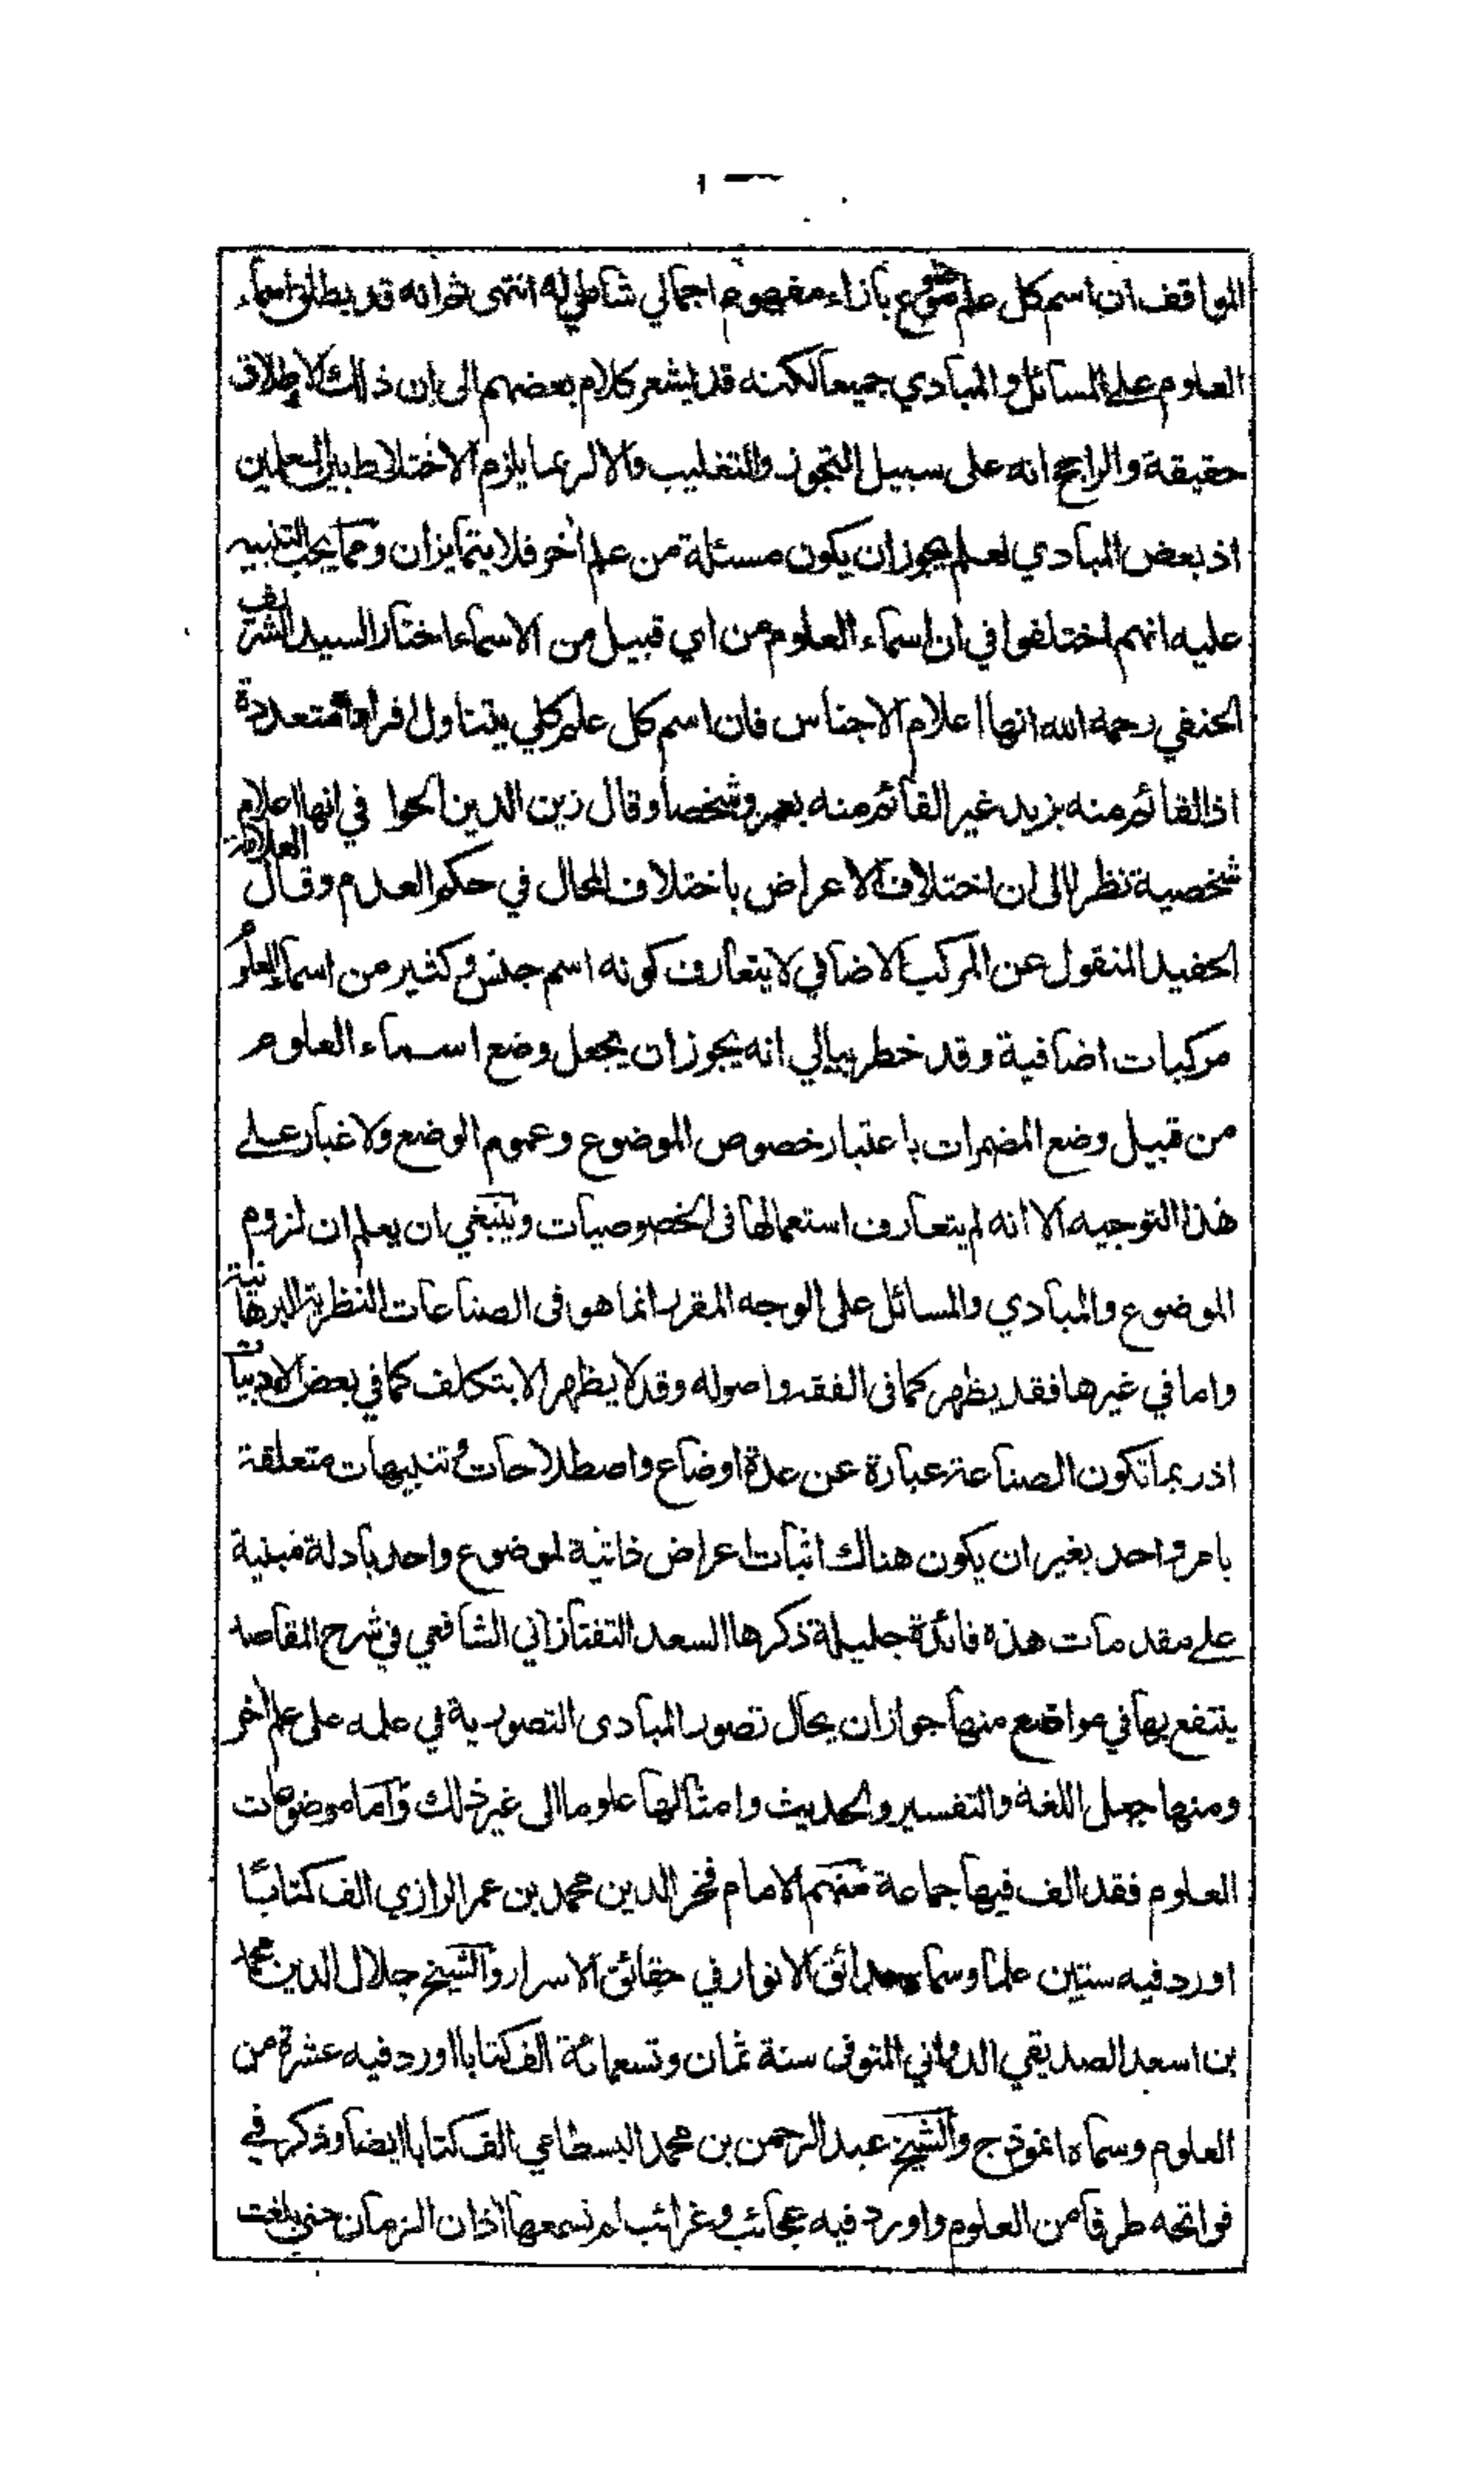 المواقف ان اسم كل علم موضوع بازاء مفهوم اجمالي شامل له انتهى ثم انه قد يطلق اسماء
العلوم على المسائل والمبادي جميعا لكنه قد يشعر كلام بعضهم الى ان ذلك الاطلاق
حقيقة والراجح انه على سبيل التجوز والتغليب والا لربما يلزم الاختلاط بين العلمين
اذ بعض المبادي لعلم يجوز ان يكون مسئلة من علم اخر فلا يتمايزان ومما يجب التنبيه
عليه انهم اختلفوا في ان اسماء العلوم من اي قبيل من الاسماء اختار السيد الشريف
الحنفي رحمه الله انها اعلام الاجناس فان اسم كل علم كلي يتناول افرادا متعددة
اذ القائم منه بزيد غير القائم منه بعمرو شخصا وقال زين الدين الحوا في انها اعلام
شخصية نظرا الى ان اختلاف الاعراض باختلاف المحال في حكم العدم وقال العلامة
الحفيد المنقول عن المركب الاضافي لا يتعارف كونه اسم جنس وكثير من اسماء العلوم
مركبات اضافية وقد خطر ببالي انه يجوز ان يجعل وضع اسماء العلوم
من قبيل وضع المضمرات باعتبار خصوص الموضوع وعموم الوضع ولا غبار على
هذا التوجيه الا انه لم يتعارف استعمالها في الخصوصيات وينبغي ان يعلم ان لزوم
الموضوع والمبادي والمسائل على الوجه المقرر انما هو في الصناعات النظرية البرهانية
واما في غيرها فقد يظهر كما في الفقه واصوله وقد لا يظهر الا بتكلف كما في بعض الادبيات
اذ ربما تكون الصناعة عبارة عن عدة اوضاع واصطلاحات وتنبيهات متعلقة
بامر واحد بغير ان يكون هناك اثبات اعراض ذاتية لموضوع واحد بادلة مبنية
على مقدمات هذه فائدة جليلة ذكرها السعد التفتازاني الشافعي في شرح المقاصد
ينتفع بها في مواضع منها جواز ان يحال تصور المبادى التصورية في علمه على علم اخر
ومنها جعل اللغة والتفسير والحديث وامثالها علوما الى غير ذلك واما موضوعات
العلوم فقد الف فيها جماعة منهم الامام فخر الدين محمد بن عمر الرازي الف كتابًا
اورد فيه ستين علما وسماه حدائق الانوار في حقائق الاسرار والشيخ جلال الدين محمد
بن اسعد الصديقي الدواني المتوفى سنة ثمان وتسعمائة الف كتابا اورد فيه عشرة من
العلوم وسماه انموذج والشيخ عبد الرحمن بن محمد البسطامي الف كتابا ايضا وذكر في
فواتحه طرفا من العلوم واورد فيه عجائب وغرائب لم تسمعها اذان الزمان حتى بلغت